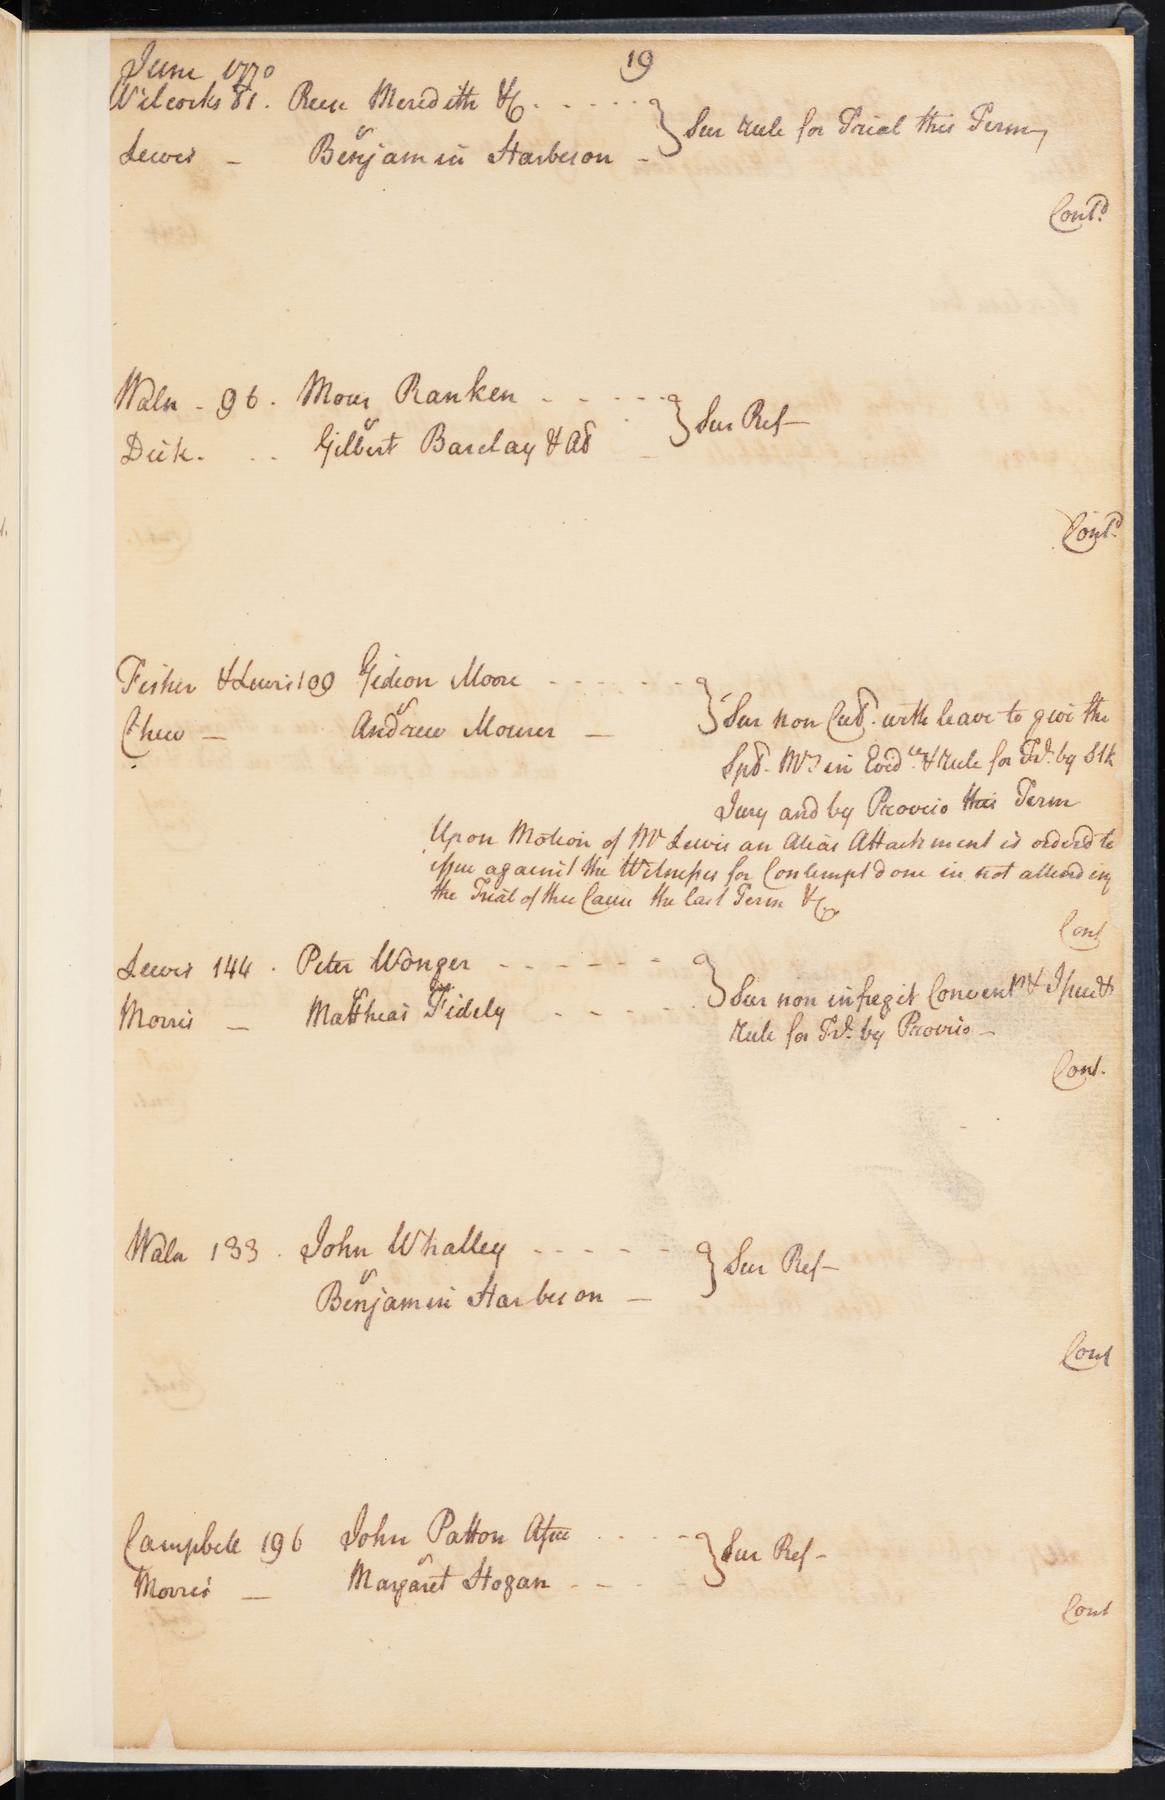 June 1770
19
Wilcocks 81. Reese Meredith &c. - - - -
vs
Lewis - Benjamin Harbeson -
Sur Rule for Trial this Term
Contd.
Waln - 96. Moses Ranken - - - - -
vs
Dick. - - Gilbert Barclay & Ad
Sur Ref -
Contd.
Fisher & Lewis 109 Gideon Moore - - - - - -
vs
Chew - Andrew Mourer -
Sur non Cul. with leave to give the
Spl. Mr. in Evidce. & Rule for Trl. by Stk
Jury and by Proviso this Term
Upon Motion of Mr Lewis an Alias Attachment is ordered to
issue against the Witnesses for Contempt done in not attending
the Trial of this Cause the last Term &c
Cont
Lewis 144. Peter Wonger - - - - - -
vs
Morris - Matthias Fidely - - - -
Sur non infregit Convent. & Issue &
Rule for Trl. by Proviso -
Cont.
Waln 133. John Whalley - - - - -
vs
Benjamin Harbeson -
Sur Ref -
Cont
Campbell 196 John Patton Assee - - - -
vs
Morris - Margaret Hogan - - -
Sur Ref -
Cont